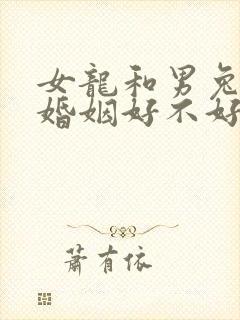 女龍和男兔
婚姻好不好
蕭有依